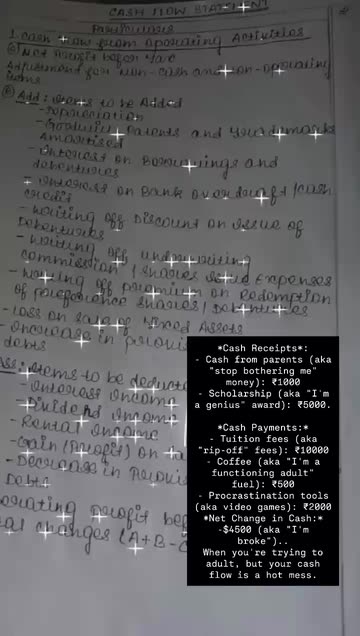 CASH FLOW STATEMENT
Particulars
1. cash flow from operating Activities
Net Profit before Tax
Adjustment for Non-cash and non-operating
items
Add: items to be Added
- Depreciation
- Goodwill, Patents and Trademarks
Amortised
- Interest on Borrowings and
debentures
- Interest on Bank overdraft / cash
credit
- writing off Discount on issue of
Debentures
- writing off underwriting
commission / shares issue Expenses
- writing off premium on Redemption
of preference shares / Debentures
- Loss on Sale of Fixed Assets
- increase in provis
debts
ess: items to be deducte
- Interest Income
- Dividend Income
- Rental Income
- Gain (Profit) on
- Decrease in Provis
Debt
erating profit bef
al changes (A+B-C
*Cash Receipts*:
- Cash from parents (aka
"stop bothering me"
money): ₹1000
- Scholarship (aka "I'm
a genius" award): ₹5000.
*Cash Payments*:
- Tuition fees (aka
"rip-off" fees): ₹10000
- Coffee (aka "I'm a
functioning adult"
fuel): ₹500
- Procrastination tools
(aka video games): ₹2000
*Net Change in Cash:*
-$4500 (aka "I'm
broke")..
When you're trying to
adult, but your cash
flow is a hot mess.